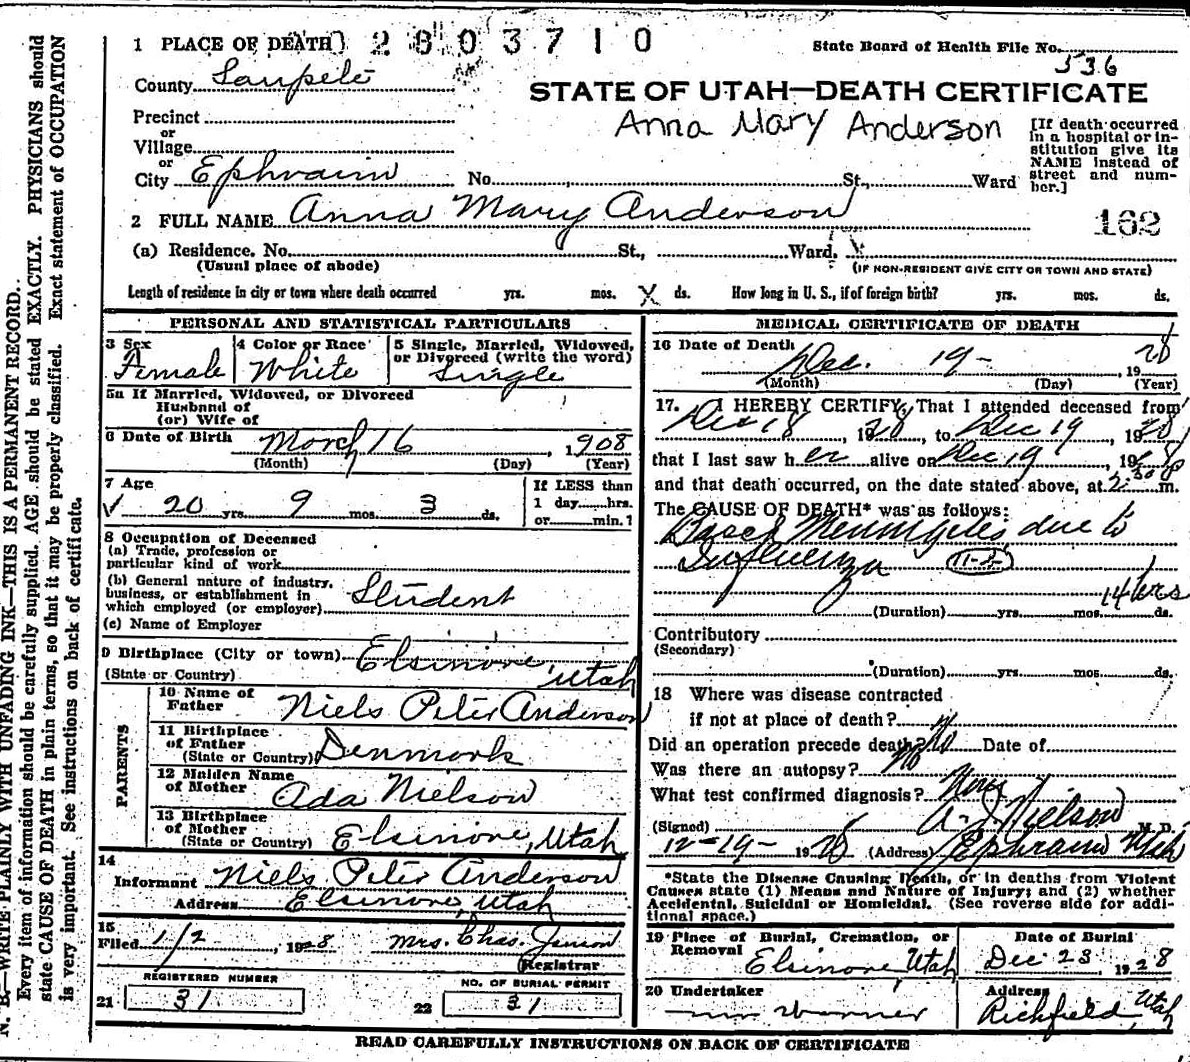 1 PLACE OF DEATH 2803710
State Board of Health File No. 536
County Sanpete
STATE OF UTAH—DEATH CERTIFICATE
Anna Mary Anderson
Precinct
or
Village
or
City Ephraim No. St., Ward
[If death occurred
in a hospital or in-
stitution give its
NAME instead of
street and num-
ber.]
2 FULL NAME Anna Mary Anderson
162
(a) Residence. No. St., Ward.
(Usual place of abode)
(IF NON-RESIDENT GIVE CITY OR TOWN AND STATE)
Length of residence in city or town where death occurred yrs. mos. X ds. How long in U. S., if of foreign birth? yrs. mos. ds.
PERSONAL AND STATISTICAL PARTICULARS
3 Sex
Female
4 Color or Race
White
5 Single, Married, Widowed,
or Divorced (write the word)
Single
5a If Married, Widowed, or Divorced
Husband of
(or) Wife of
6 Date of Birth March 16, 1908
(Month) (Day) (Year)
7 Age
20 yrs. 9 mos. 3 ds.
If LESS than
1 day hrs.
or min.?
8 Occupation of Deceased
(a) Trade, profession or
particular kind of work
(b) General nature of industry,
business, or establishment in
which employed (or employer) Student
(c) Name of Employer
9 Birthplace (City or town) Elsinore, Utah
(State or Country)
PARENTS
10 Name of
Father Niels Peter Anderson
11 Birthplace
of Father
(State or Country) Denmark
12 Maiden Name
of Mother Ada Nielson
13 Birthplace
of Mother
(State or Country) Elsinore, Utah
14
Informant Niels Peter Anderson
Address Elsinore, Utah
15
Filed 1/2, 1928 Mrs. Chas. Jenson
Registrar
REGISTERED NUMBER
21 31
NO. OF BURIAL PERMIT
22 31
MEDICAL CERTIFICATE OF DEATH
16 Date of Death
Dec. 19 - , 1928
(Month) (Day) (Year)
17. I HEREBY CERTIFY, That I attended deceased from
Dec 18, 1928, to Dec 19, 1928
that I last saw her alive on Dec 19, 1928
and that death occurred, on the date stated above, at 2:30 m.
The CAUSE OF DEATH* was as follows:
Meningitis due to
Influenza 11-
14 hrs
(Duration) yrs. mos. ds.
Contributory
(Secondary)
(Duration) yrs. mos. ds.
18 Where was disease contracted
if not at place of death?
Did an operation precede death? No Date of
Was there an autopsy? No
What test confirmed diagnosis? None
(Signed) A. J. Nielson M. D.
12-19-1928 (Address) Ephraim Utah
*State the Disease Causing Death, or in deaths from Violent
Causes state (1) Means and Nature of Injury; and (2) whether
Accidental, Suicidal or Homicidal. (See reverse side for addi-
tional space.)
19 Place of Burial, Cremation, or
Removal
Elsinore, Utah
Date of Burial
Dec 23, 1928
20 Undertaker
Warner
Address
Richfield, Utah
READ CAREFULLY INSTRUCTIONS ON BACK OF CERTIFICATE
N. B.—WRITE PLAINLY WITH UNFADING INK—THIS IS A PERMANENT RECORD.
Every item of information should be carefully supplied. AGE should be stated EXACTLY. PHYSICIANS should
state CAUSE OF DEATH in plain terms, so that it may be properly classified. Exact statement of OCCUPATION
is very important. See instructions on back of certificate.